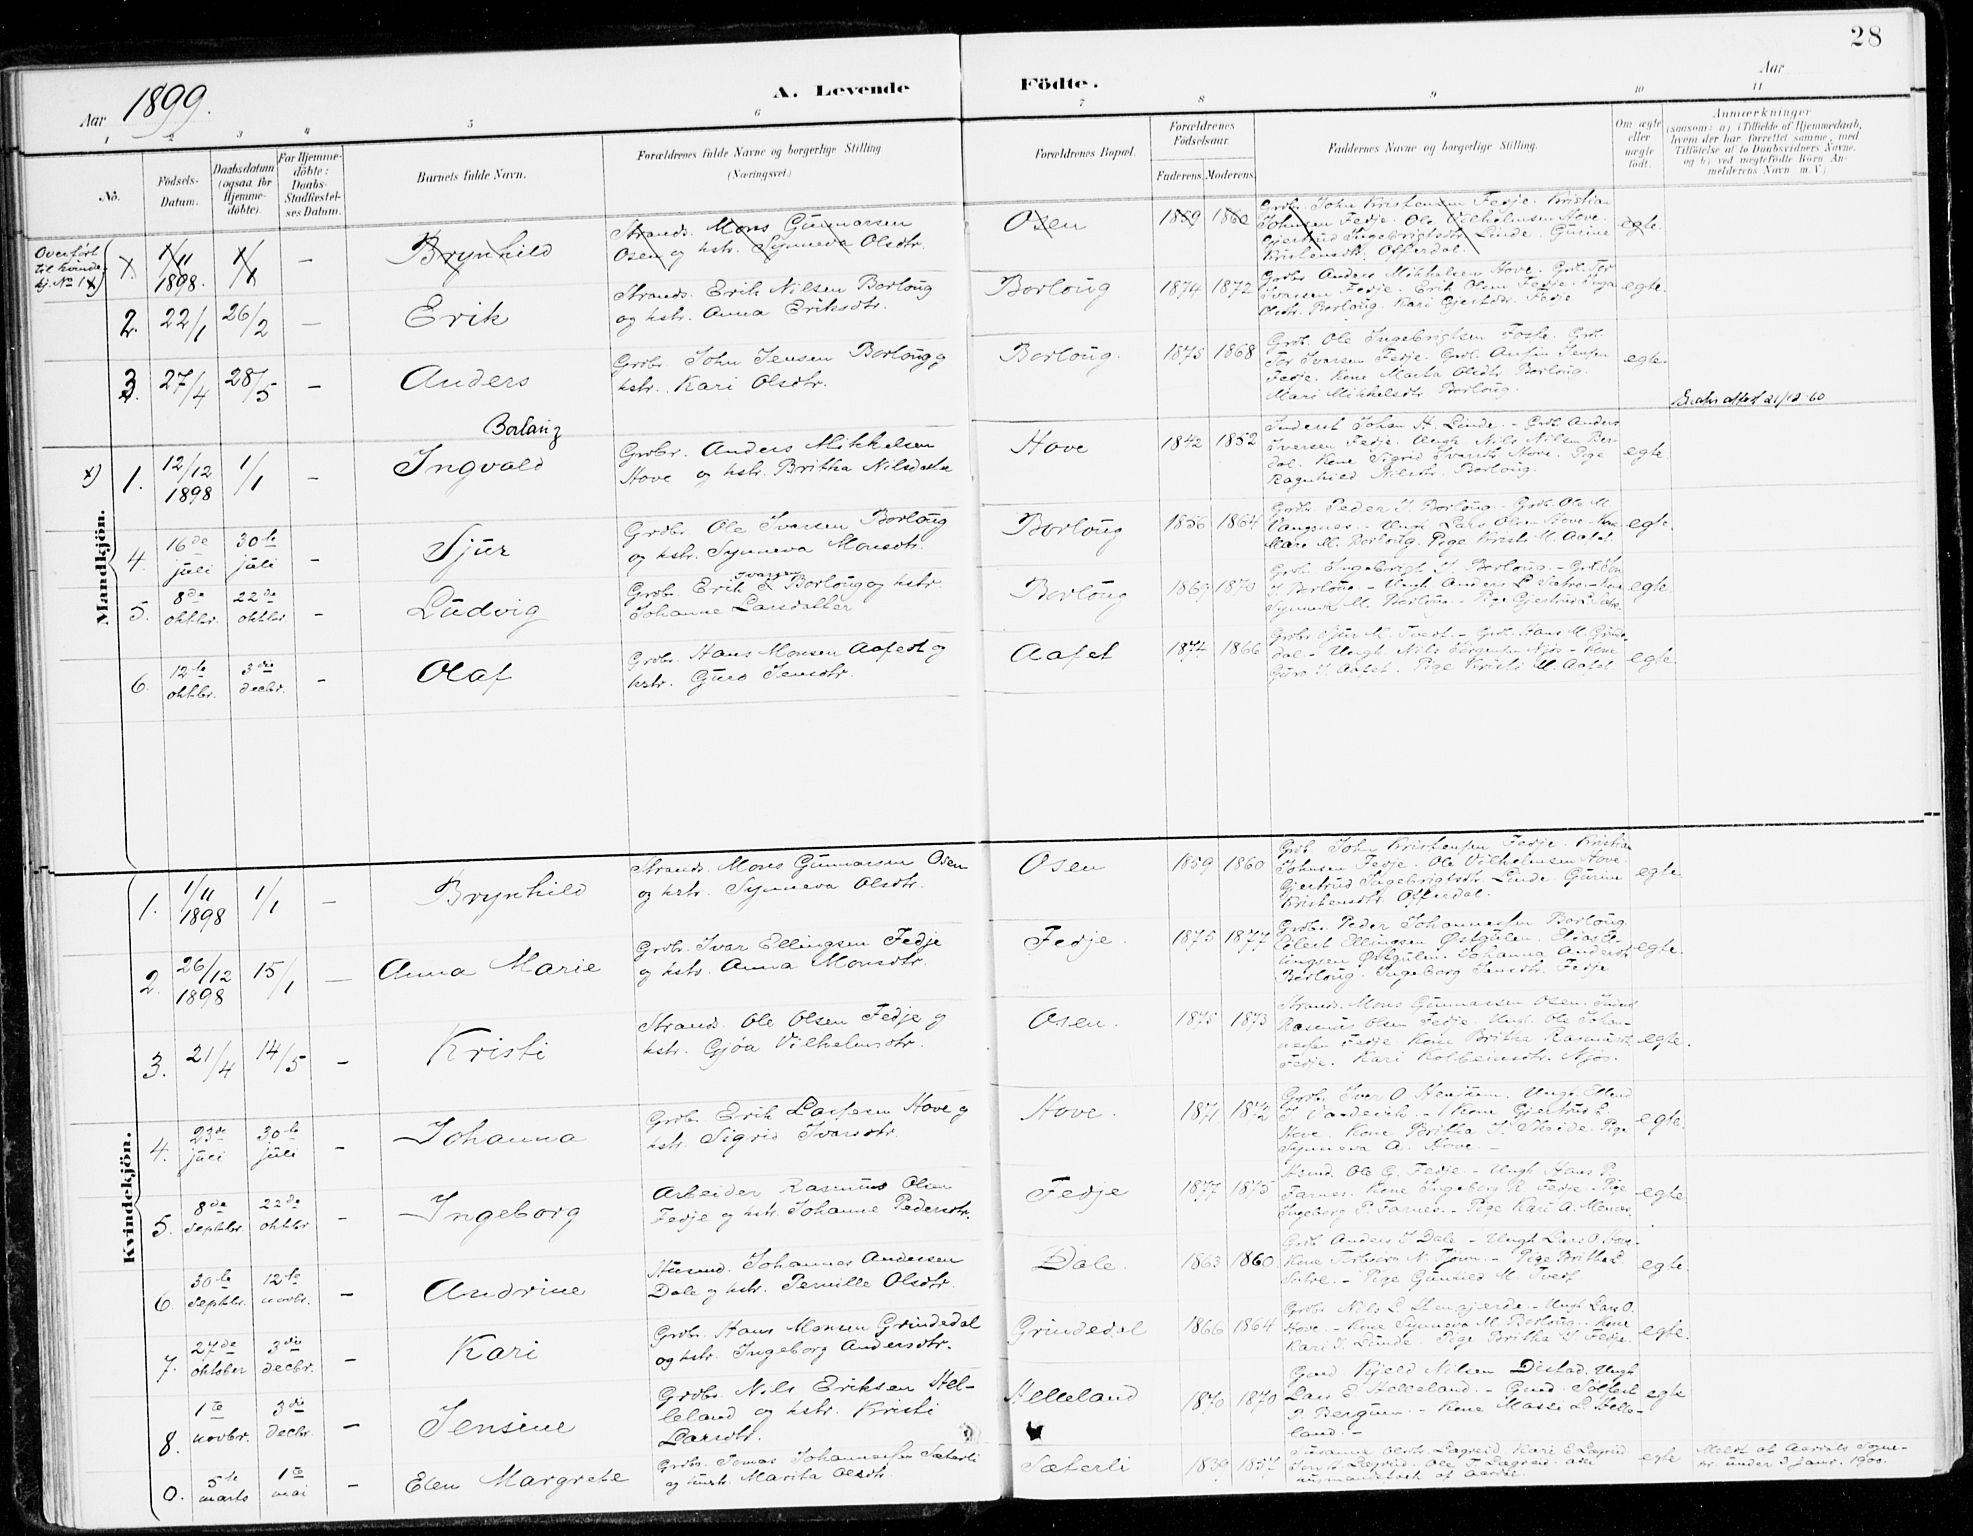 28
Aar 1899.
A. Levende Födte.
Aar
1 2 3 4 5 6 7 8 9 10 11
No.
Födsels-Datum.
Daabsdatum (ogsaa for Hjemme-döbte).
For Hjemme-döbte: Daabs-Stadfæstel-ses Datum.
Barnets fulde Navn.
Forældrenes fulde Navne og borgerlige Stilling (Næringsvei.)
Forældrenes Bopæl.
Forældrenes Födselsaar.
Faderens. Moderens.
Faddernes Navne og borgerlige Stilling.
Om ægte eller uægte født.
Anmærkninger
(saasom: a) i Tilfælde af Hjemmedaab, hvem der har forrettet samme, med Tilføielse af to Daabsvidners Navne, og b) ved uegtefödte Börn An-melderens Navn m. V.)
Mandkjön.
Overført til kvinde-kj. No 1 x)
1/11 1898. 1/1 – Brynhild
Strands. Mons Gunnarsen
Osen og hstr. Synneva Olsdtr.
Osen 1859 1860
Grdbr. John Kristensen Fedje. Kristian
Johnsen Fedje. Ole Vilhelmsen Hove.
Gjertrud Ingebrigtsdtr. Linde. Gurine
Kristensdtr. Offerdal.
egte.
2. 22/1 26/2 – Erik
Strands. Erik Nilsen Borloug
og hstr. Anna Eriksdtr.
Borloug 1874 1872
Grdbr. Anders Mikkelsen Hove. Grdb. Tor
Ivarsen Fedje. Erik Olsen Fedje. Inga
Olsdtr. Borloug. Kari Gjertsdtr. Fedje
egte.
3. 27/4 28/5 – Anders
Grdbr. John Jensen Borloug og
hstr. Kari Olsdtr.
Borloug. 1875 1868
Grdb. Ole Ingebrigtsen Foshe. Grdb.
Tor Ivarsen Fedje. Grdb. Anfin Jensen
Fedje. Kone Marta Olsdtr Borloug.
Mari Mikkelsdtr Borloug.
egte.
21/12-60
x) 1. 12/12 1898 1/1 – Ingvald
Grdbr. Anders Mikkelsen
Hove og hstr. Britha Nilsdatter
Hove 1842 1852
Inderst Johan H. Linde. – Grdb. Anders
Iversen Fedje. Ungk. Nils Nilsen Ber-
dal. Kone Sigrid Ivarsdtr Hove. Pige
Ragnhild Nilsdtr. Borloug.
egte.
4. 16de juli 30te juli – Sjur
Grdbr. Ole Ivarsen Borloug
og hstr. Synneva Monsdtr.
Borloug 1856 1864
Grdb. Peder I. Borloug – Grdb. Ole M.
Vangsnes – Ungk. Lars Olsen Hove – Kone
Mari M. Borloug. Pige Kristi M. Aafet.
egte.
5. 8de oktbr. 22de oktbr – Ludvig
Grdbr. Erik Ivarsen Borloug og hstr.
Johanne Larsdatter
Borloug 1869 1870
Grdb. Ingebrigt I. Borloug. – Grdb.
I. Borloug – Ungk. Anders L. Sætre. – Kone
Synneva M. Borloug – Pige Gjertrud L. Sætre.
egte.
6. 12te oktbr. 3die decbr. – Olaf
Grdbr. Hans Monsen Aafedt og
hstr. Guro Jensdtr.
Aafet 1874 1866
Grdbr Sjur M. Tvedt. – Grdb. Hans M. Grinde-
dal. – Ungk Nils Jörgensen Njøs – Kone
Guro I. Aafet. Pige Kristi M. Aafet
egte.
Kvindekjön.
1. 1/11 1898 1/1 – Brynhild
Strands. Mons Gunnarsen Osen
og hstr. Synneva Olsdtr.
Osen 1859 1860
Grdb. John Kristensen Fedje. Kristian
Johnsen Fedje. Ole Vilhelmsen Hove.
Gjertrud Ingebrigtsdtr. Linde. Gurine
Kristensdtr. Offerdal.
egte
2. 26/12 1898 15/1 – Anna Marie
Grdbr. Ivar Ellingsen Fedje
og hstr. Anna Monsdtr.
Fedje. 1875 1877
Grdbr. Peder Johannessen Borloug.
Ellingsen Østgulen. El-
lingsen Østgulen. Johanna Andersdtr
Borloug. Ingeborg Jensdtr. Fedje
egte.
3. 21/4 14/5 – Kristi
Strands. Ole Olsen Fedje og
hstr. Gjøa Vilhelmsdtr.
Osen. 1875 1873
Strands. Mons Gunnarsen Osen. Inderst
Rasmus Olsen Fedje. Ungk. Ole Johan-
nessen Fedje Kone Britha Rasmusdt.
Fedje. Kari Kolbeinsdtr. Njøs.
egte.
4. 23de juli 30te juli – Johanna
Grdbr. Erik Larsen Hove og
hstr. Sigrid Ivarsdtr.
Hove. 1871 1872
Grdbr. Iver O. Ungk.
Kone Gjertrud E.
Hove. Kone Britha Pige
Synneva A. Hove. –
egte.
5. 8de Septbr. 22de oktbr – Ingeborg
Arbeider Rasmus Olsen
Fedje og hstr. Johanne Pedersdtr.
Fedje 1877 1875
Ole G. Fedje – Ungk Hans P.
Farnes. Kone Ingeborg R. Fedje – Pige
Ingeborg P. Farnes. – Pige Kari A. Menes.
egte.
6. 30te Septbr. 12te novbr. – Andrine
Husmd. Johannes Andersen
Dale og hstr. Pernille Olsdtr.
Dale. 1863 1860
Grdb. Anders I. Dale – Ungk Lars O. Hove.
Kone Torbjør N. – Pige Britha L.
Sætre. – Pige Gunild M. Tvedt
egte.
7. 27de oktober 3die decbr. – Kari
Grdbr. Hans Monsen Grindedal
og hstr. Ingeborg Andersdtr.
Grindedal 1866 1864
Grdbr Nils L. Stengjerde. – Ungk Lars O.
Hove – Kone Synneva M. Borloug – Kone
Kari I. Linde. Pige Britha I. Fedje
egte.
8. 1te novbr. 3die decbr. – Jensine
Grdbr. Nils Eriksen Hel-
leland og hstr. Kristi
Larsdtr.
Helleland 1870 1870
Gmd Kjeld Nilsen Distad. Ungk
Lars E. Helleland. – Gmd. Sølfest
P. Bergum. – Kone Massi L. Helle-
land. –
egte
0. 5te marts 1te mai – Elen Margrete
Grdbr. Tomas Johannessen Sæterli
og hustr. Marita Olsdtr.
Sæterli 1839 1857
Susanne Olsdtr. Lægreid. Kari E. Lægreid
H. Lægreid. Ole T. Lægreid. alle
egte
Meldt af Aardals Sogne-
pr. under 3 janr. 1900.